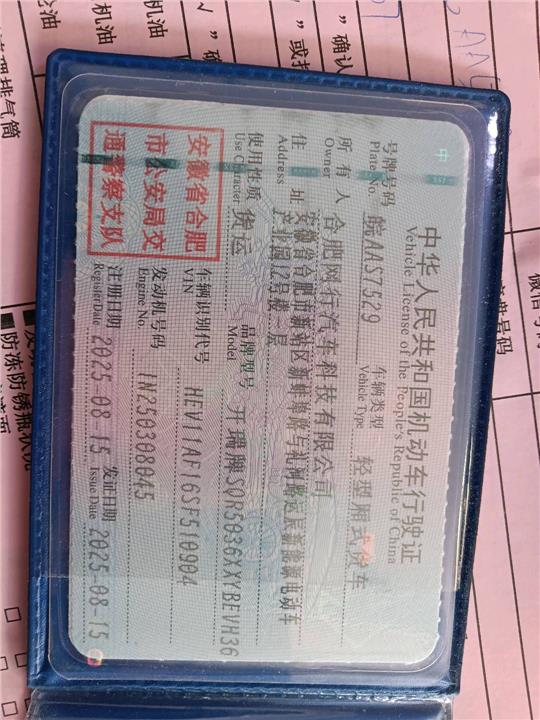 中华人民共和国机动车行驶证
Vehicle License of the People's Republic of China
号牌号码 皖AAS7529 车辆类型 轻型厢式货车
Plate No. Vehicle Type
所有人 合肥网行汽车科技有限公司
Owner
住址 安徽省合肥市新站区新蚌埠路与
Address 产业园12号楼一层
使用性质 货运 品牌型号 开瑞牌SQR5036XXYBEVH36
Use Character Model
安徽省合肥
市公安局交
通警察支队
车辆识别代号 HEV11AF16SF510904
VIN
发动机号码 1N250308045
Engine No.
注册日期 2025-08-15 发证日期 2025-08-15
Register Date Issue Date
机油
机油
排气筒
确认
号码
防冻防锈